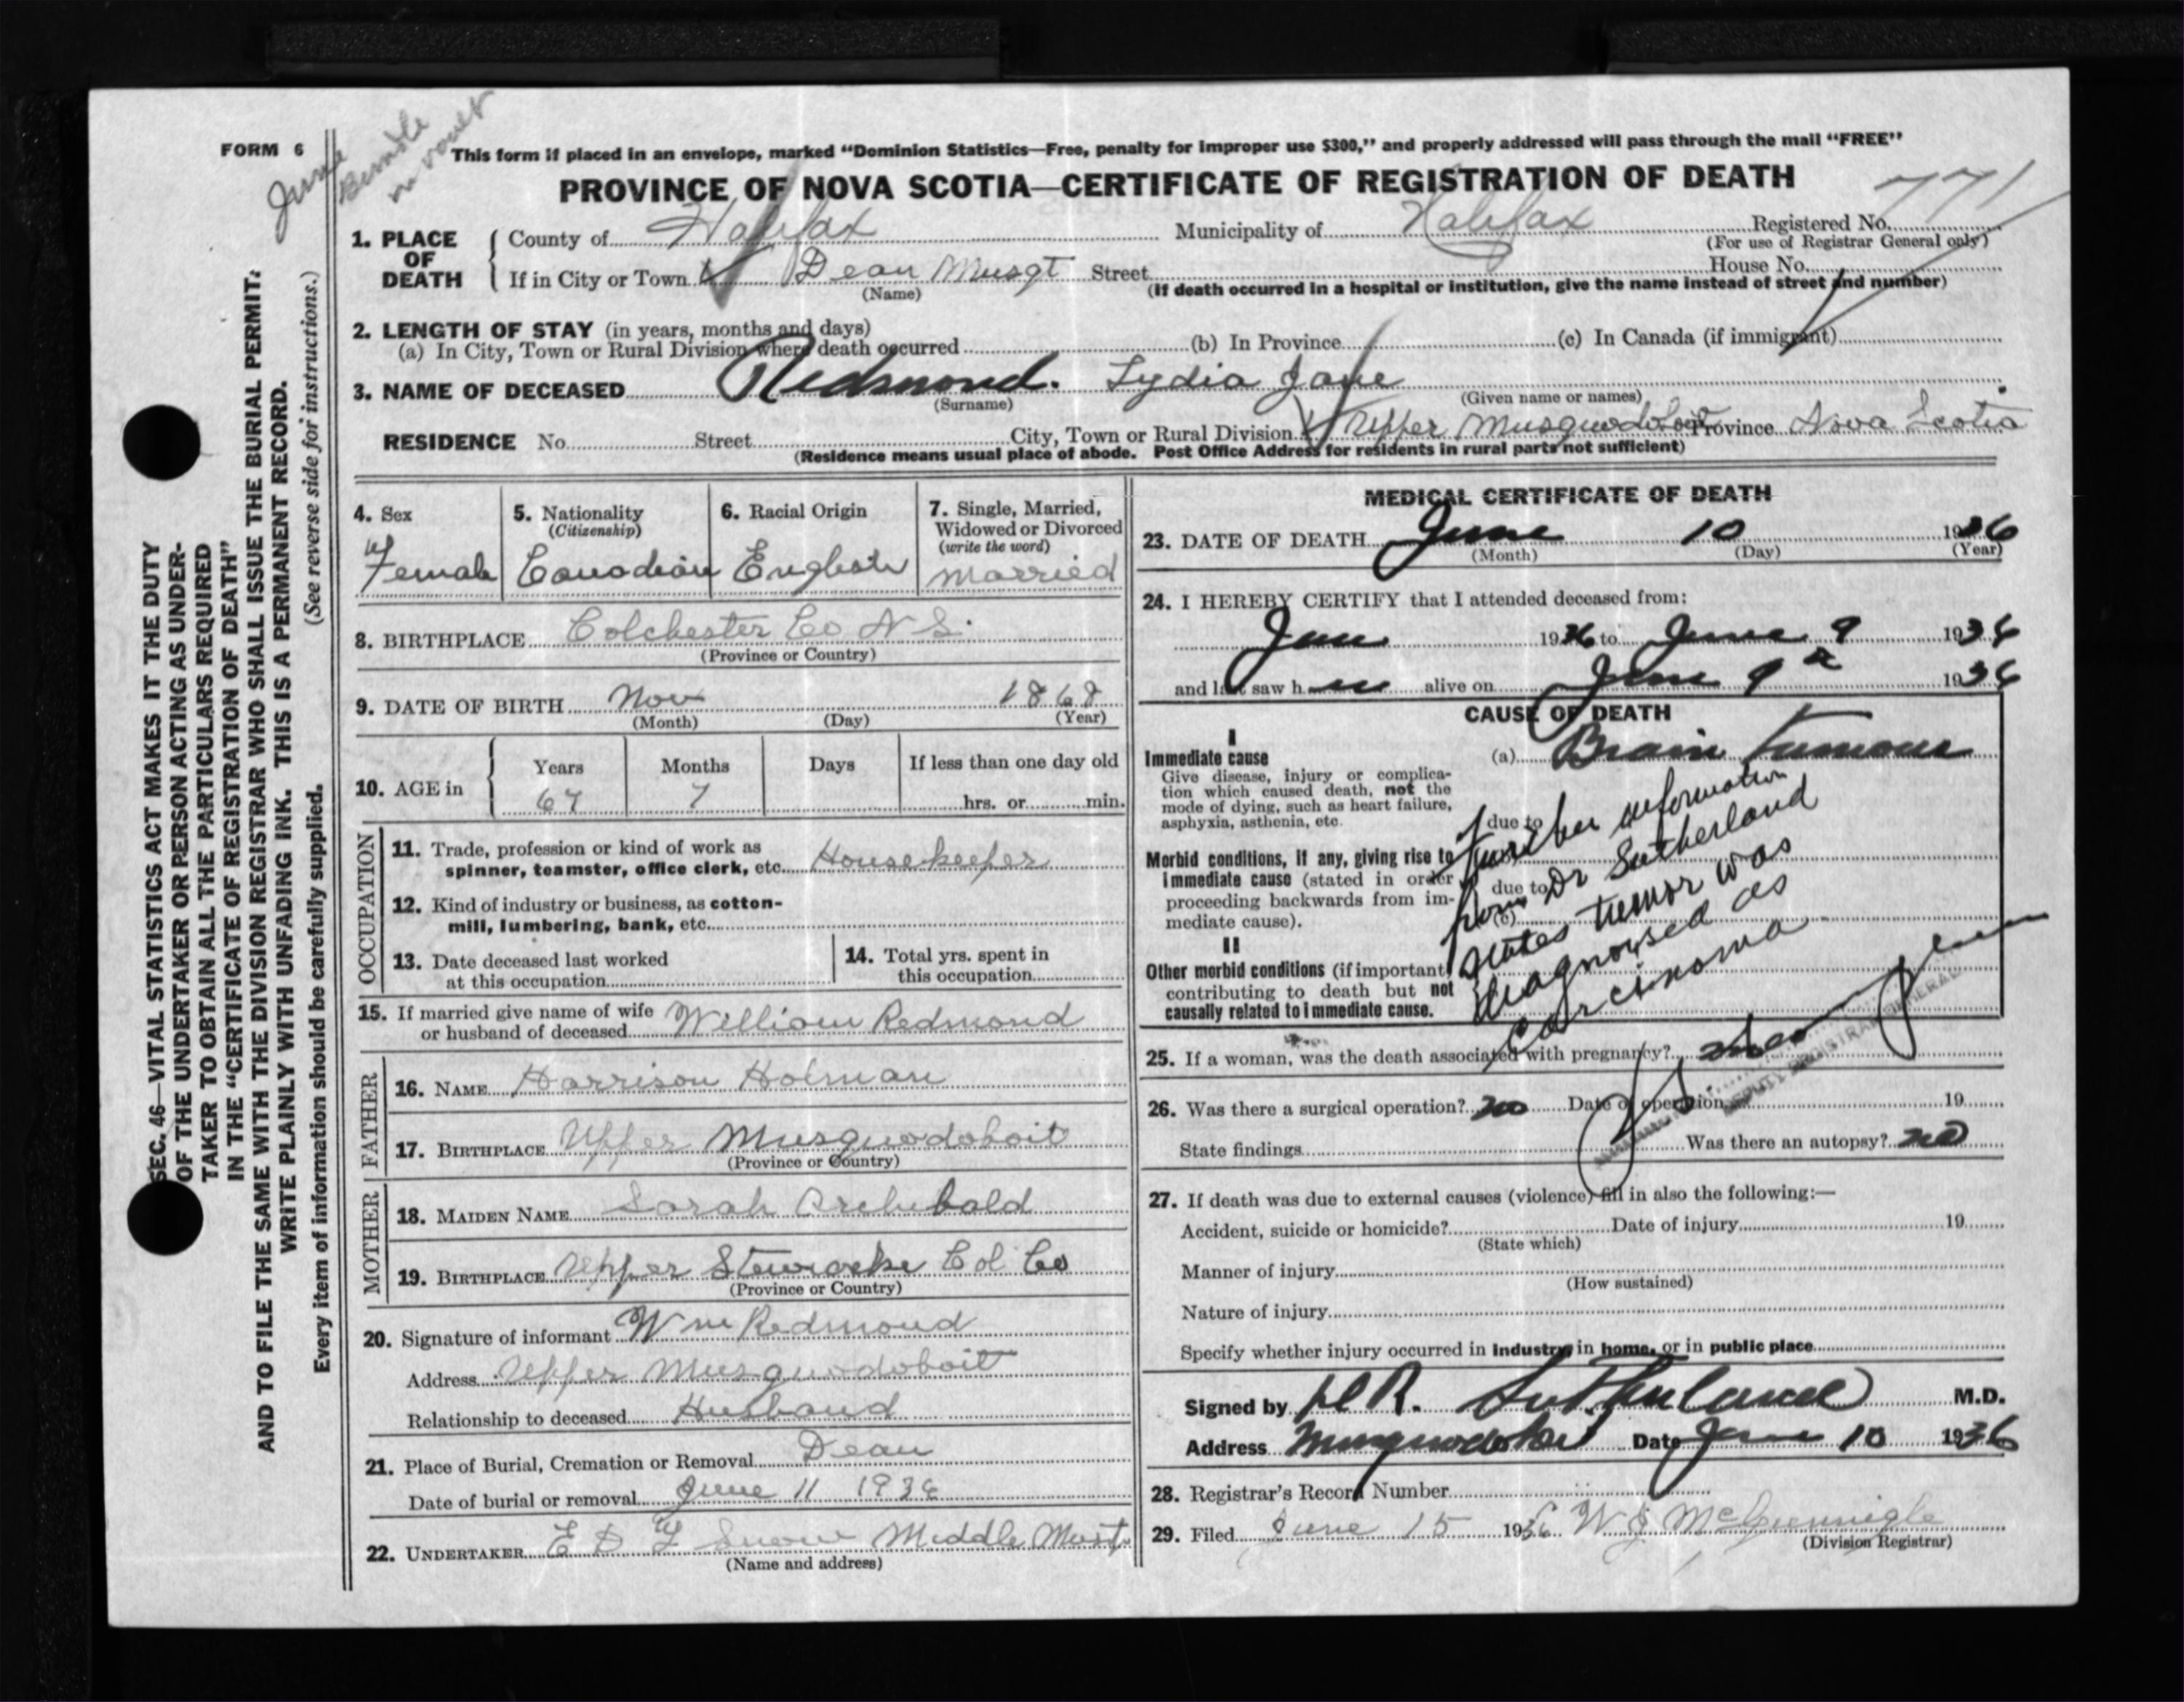 June
Bundle
in vault
FORM 6
This form if placed in an envelope, marked “Dominion Statistics—Free, penalty for improper use $300,” and properly addressed will pass through the mail “FREE”
PROVINCE OF NOVA SCOTIA—CERTIFICATE OF REGISTRATION OF DEATH
771
1. PLACE OF DEATH { County of Halifax Municipality of Halifax Registered No.
(For use of Registrar General only)
If in City or Town Dean Musqt Street House No.
(Name) (If death occurred in a hospital or institution, give the name instead of street and number)
2. LENGTH OF STAY (in years, months and days)
(a) In City, Town or Rural Division where death occurred (b) In Province (c) In Canada (if immigrant)
3. NAME OF DECEASED Redmond. Lydia Jane
(Surname) (Given name or names)
RESIDENCE No. Street City, Town or Rural Division Upper Musquodoboit Province Nova Scotia
(Residence means usual place of abode. Post Office Address for residents in rural parts not sufficient)
SEC. 46—VITAL STATISTICS ACT MAKES IT THE DUTY
OF THE UNDERTAKER OR PERSON ACTING AS UNDER-
TAKER TO OBTAIN ALL THE PARTICULARS REQUIRED
IN THE “CERTIFICATE OF REGISTRATION OF DEATH”
AND TO FILE THE SAME WITH THE DIVISION REGISTRAR WHO SHALL ISSUE THE BURIAL PERMIT.
WRITE PLAINLY WITH UNFADING INK. THIS IS A PERMANENT RECORD.
Every item of information should be carefully supplied. (See reverse side for instructions.)
4. Sex
Female
5. Nationality
(Citizenship)
Canadian
6. Racial Origin
English
7. Single, Married,
Widowed or Divorced
(write the word)
married
8. BIRTHPLACE Colchester Co N S.
(Province or Country)
9. DATE OF BIRTH Nov 1868
(Month) (Day) (Year)
10. AGE in { Years Months Days If less than one day old
67 7 hrs. or min.
OCCUPATION
11. Trade, profession or kind of work as
spinner, teamster, office clerk, etc. Housekeeper
12. Kind of industry or business, as cotton-
mill, lumbering, bank, etc.
13. Date deceased last worked
at this occupation
14. Total yrs. spent in
this occupation
15. If married give name of wife
or husband of deceased William Redmond
FATHER
16. NAME Harrison Holman
17. BIRTHPLACE Upper Musquodoboit
(Province or Country)
MOTHER
18. MAIDEN NAME Sarah Archibald
19. BIRTHPLACE Upper Stewiacke Col Co
(Province or Country)
20. Signature of informant Wm Redmond
Address Upper Musquodoboit
Relationship to deceased Husband
21. Place of Burial, Cremation or Removal Dean
Date of burial or removal June 11 1936
22. UNDERTAKER Snow Middle Musq
(Name and address)
MEDICAL CERTIFICATE OF DEATH
23. DATE OF DEATH June 10 1936
(Month) (Day) (Year)
24. I HEREBY CERTIFY that I attended deceased from:
1936 to June 9 1936
and last saw her alive on June 9 1936
CAUSE OF DEATH
I
Immediate cause
Give disease, injury or complica-
tion which caused death, not the
mode of dying, such as heart failure,
asphyxia, asthenia, etc.
(a) Brain tumour
due to
Morbid conditions, if any, giving rise to
immediate cause (stated in order
proceeding backwards from im-
mediate cause).
due to
(c)
II
Other morbid conditions (if important)
contributing to death but not
causally related to immediate cause.
Further information
from Dr Sutherland
states tumor was
diagnosed as
carcinoma
DEPUTY REGISTRAR GENERAL
25. If a woman, was the death associated with pregnancy?
26. Was there a surgical operation? no Date of operation 19
State findings Was there an autopsy? no
27. If death was due to external causes (violence) fill in also the following:—
Accident, suicide or homicide? Date of injury 19
(State which)
Manner of injury
(How sustained)
Nature of injury
Specify whether injury occurred in industry, in home, or in public place
Signed by R. Sutherland M.D.
Address Musquodoboit Date June 10 1936
28. Registrar's Record Number
29. Filed June 15 1936
(Division Registrar)